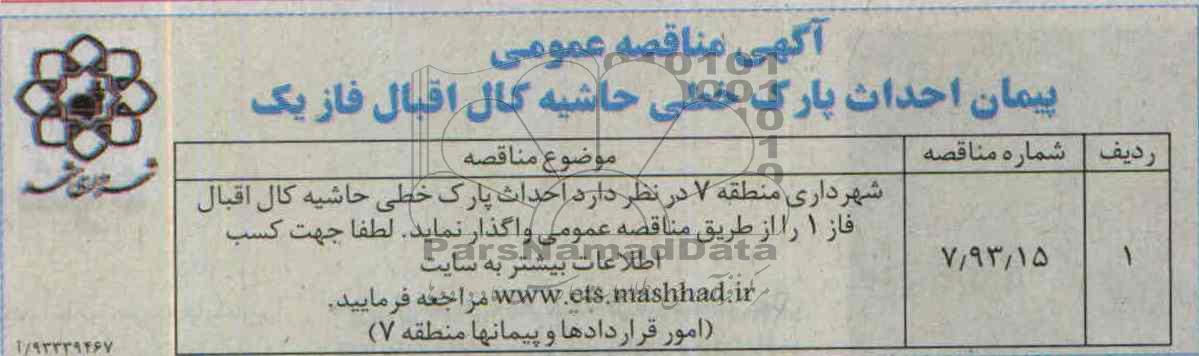 آگهی مناقصه عمومی
پیمان احداث پارک خطی حاشیه کال اقبال فاز یک
ردیف شماره مناقصه موضوع مناقصه
۱ ۷٫۹۳٫۱۵ شهرداری منطقه ۷ در نظر دارد احداث پارک خطی حاشیه کال اقبال
فاز ۱ را از طریق مناقصه عمومی واگذار نماید. لطفا جهت کسب
اطلاعات بیشتر به سایت
www.ets.mashhad.ir مراجعه فرمایید.
(امور قراردادها و پیمانها منطقه ۷)
شهرداری مشهد
۹۳۳۳۹۴۶۷/آ
ParsNamadData